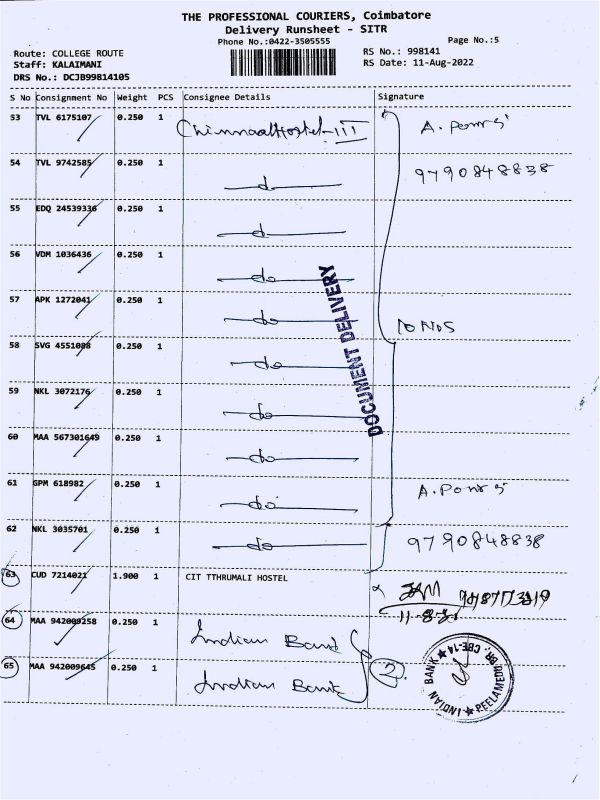 THE PROFESSIONAL COURIERS, Coimbatore
Delivery Runsheet - SITR
Phone No.:0422-3505555
Page No.:5
Route: COLLEGE ROUTE
RS No.: 998141
Staff: KALAIMANI
RS Date: 11-Aug-2022
DRS No.: DCJB99814105
S No Consignment No Weight PCS Consignee Details Signature
53 TVL 6175107 0.250 1 Hostel-III
54 TVL 9742585 0.250 1 do 9790848838
55 EDQ 24539336 0.250 1 do
56 VDM 1036436 0.250 1 do
57 APK 1272041 0.250 1 do 10 NOS
DOCUMENT DELIVERY
58 SVG 4551088 0.250 1 do
59 NKL 3072176 0.250 1 do
60 MAA 567301649 0.250 1 do
61 GPM 618982 0.250 1 do
62 NKL 3035701 0.250 1 do 9790848838
63 CUD 7214021 1.900 1 CIT TTHRUMALI HOSTEL
64 MAA 942009258 0.250 1 Indian Bank
65 MAA 942009645 0.250 1 Indian Bank 2
INDIAN BANK ★ PEELAMEDU BR. CBE-14 ★